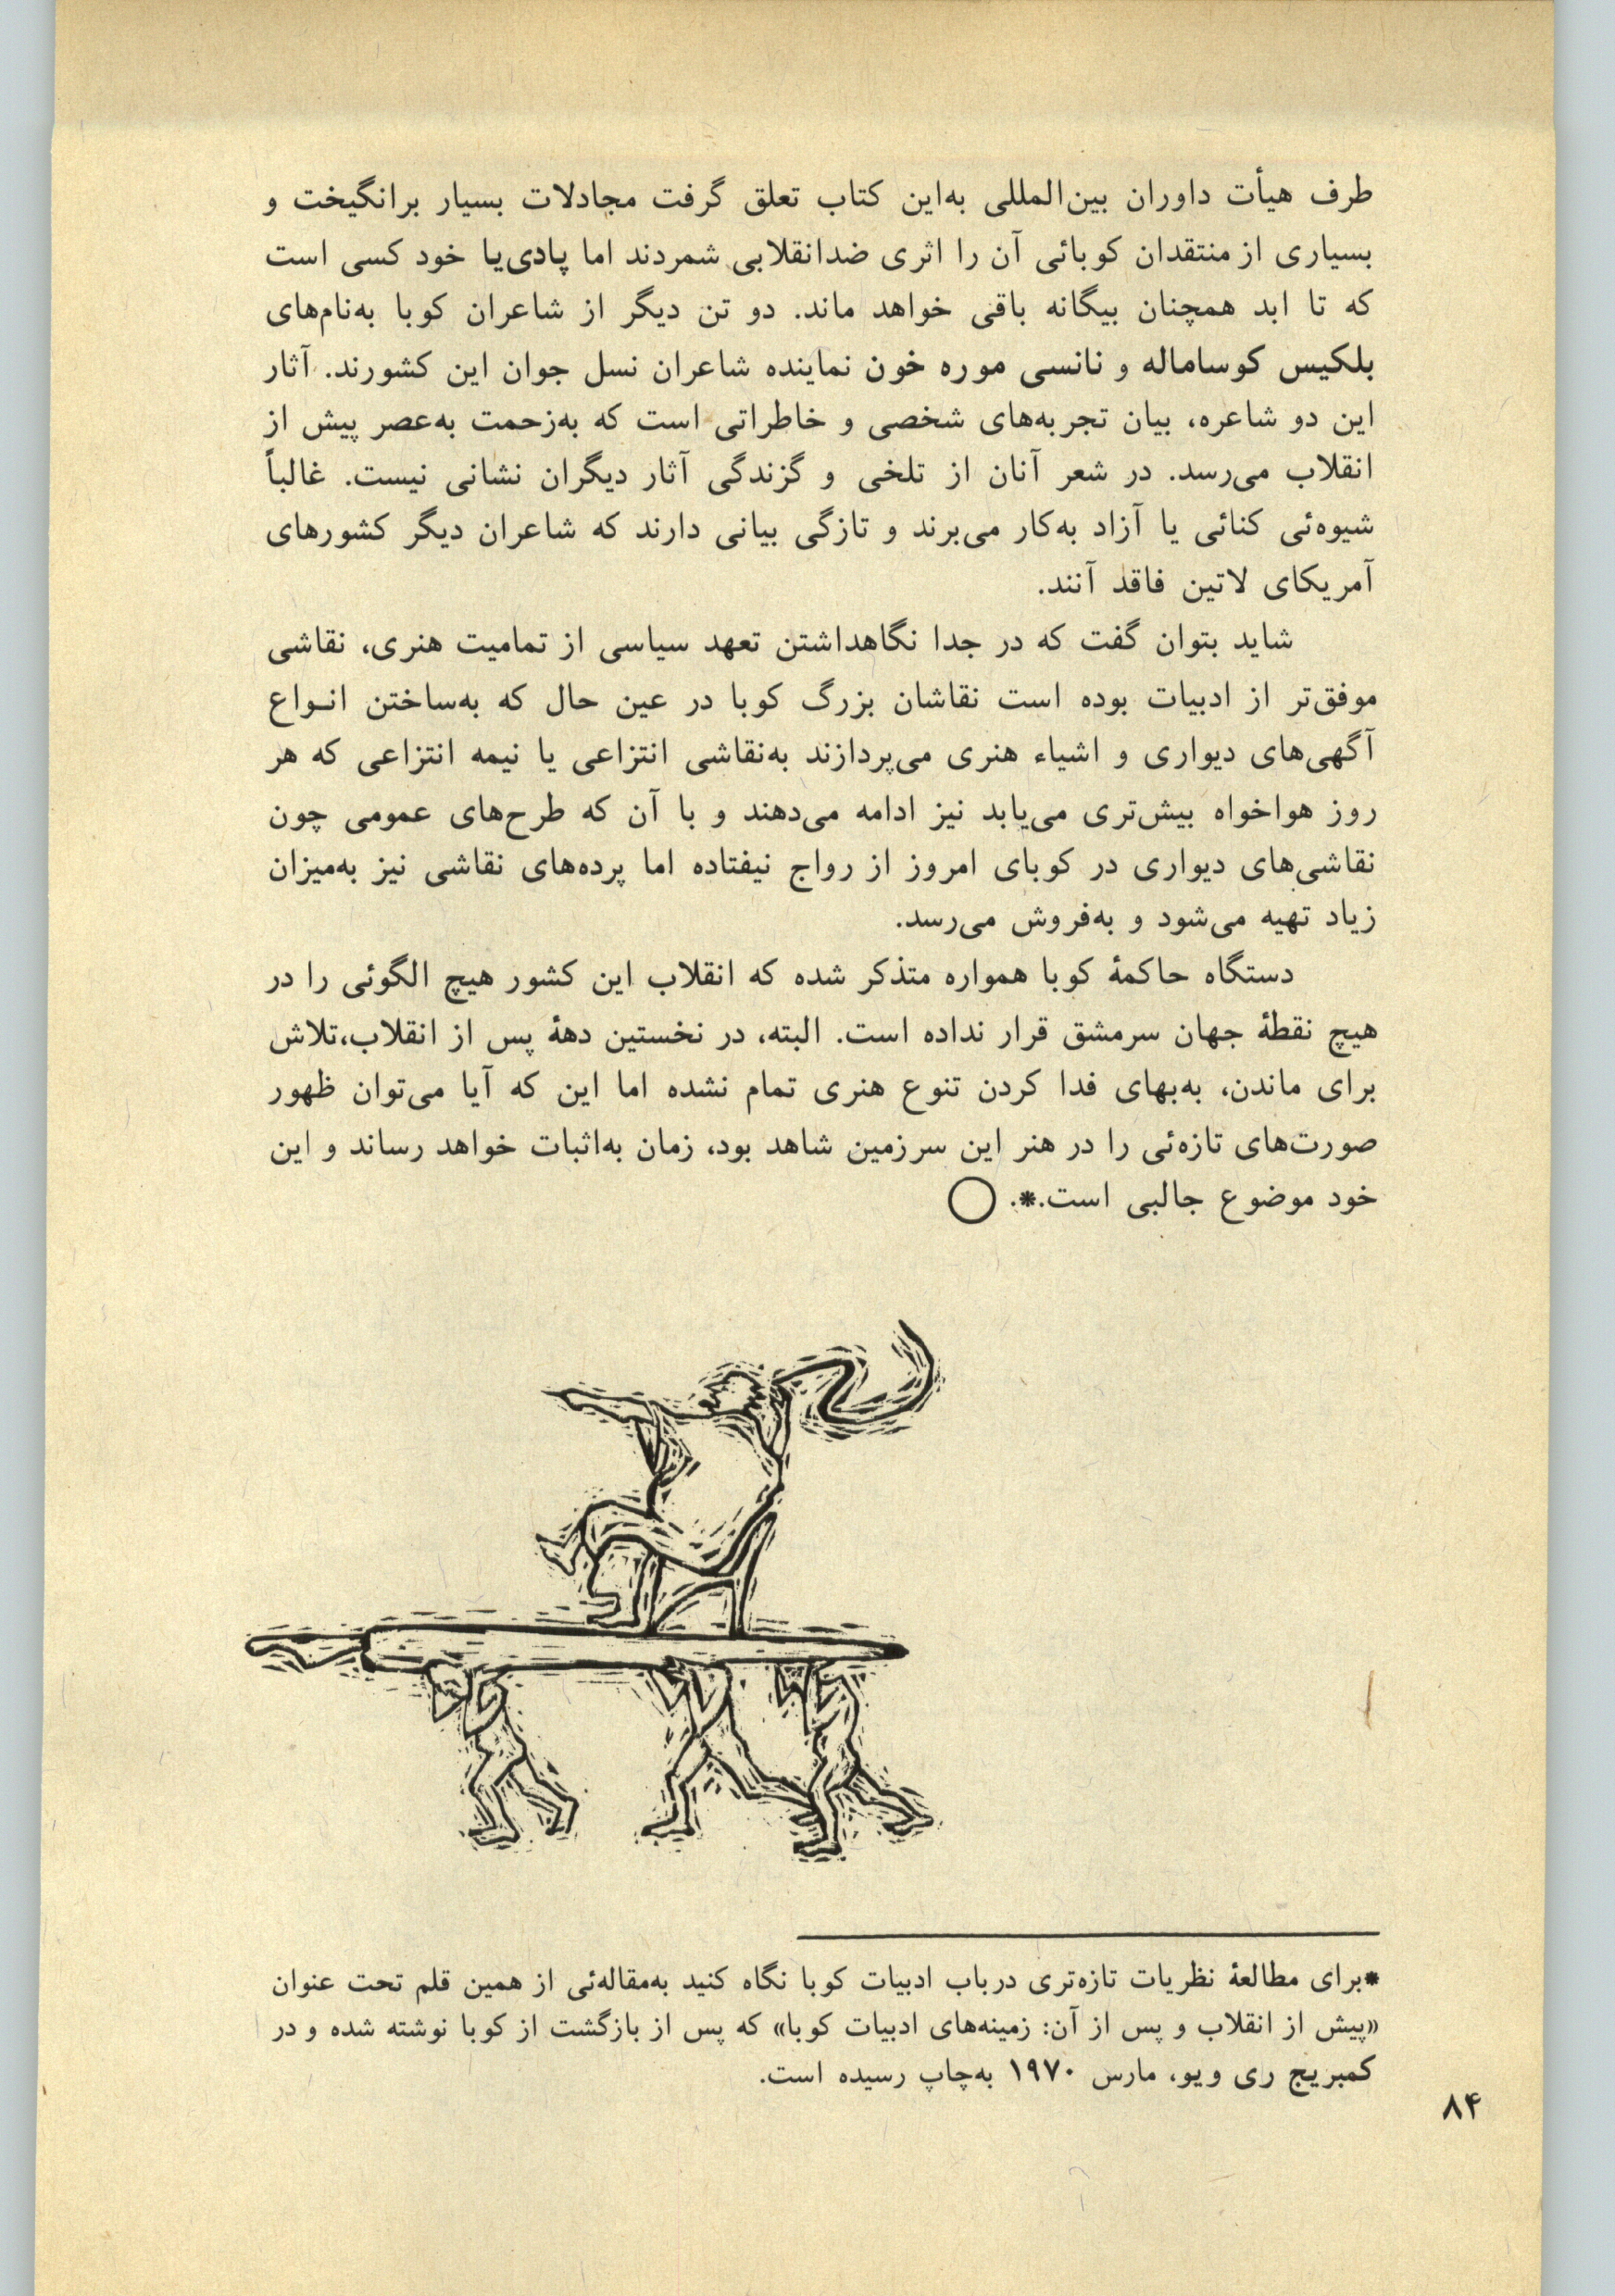 طرف هیأت داوران بین‌المللی به‌این کتاب تعلق گرفت مجادلات بسیار برانگیخت و
بسیاری از منتقدان کوبائی آن را اثری ضدانقلابی شمردند اما پادی‌یا خود کسی است
که تا ابد همچنان بیگانه باقی خواهد ماند. دو تن دیگر از شاعران کوبا به‌نام‌های
بلکیس کوساماله و نانسی موره خون نماینده شاعران نسل جوان این کشورند. آثار
این دو شاعره، بیان تجربه‌های شخصی و خاطراتی است که به‌زحمت به‌عصر پیش از
انقلاب می‌رسد. در شعر آنان از تلخی و گزندگی آثار دیگران نشانی نیست. غالباً
شیوه‌ئی کنائی یا آزاد به‌کار می‌برند و تازگی بیانی دارند که شاعران دیگر کشورهای
آمریکای لاتین فاقد آنند.
شاید بتوان گفت که در جدا نگاهداشتن تعهد سیاسی از تمامیت هنری، نقاشی
موفق‌تر از ادبیات بوده است نقاشان بزرگ کوبا در عین حال که به‌ساختن انـواع
آگهی‌های دیواری و اشیاء هنری می‌پردازند به‌نقاشی انتزاعی یا نیمه انتزاعی که هر
روز هواخواه بیش‌تری می‌یابد نیز ادامه می‌دهند و با آن که طرح‌های عمومی چون
نقاشی‌های دیواری در کوبای امروز از رواج نیفتاده اما پرده‌های نقاشی نیز به‌میزان
زیاد تهیه می‌شود و به‌فروش می‌رسد.
دستگاه حاکمهٔ کوبا همواره متذکر شده که انقلاب این کشور هیچ الگوئی را در
هیچ نقطهٔ جهان سرمشق قرار نداده است. البته، در نخستین دههٔ پس از انقلاب،تلاش
برای ماندن، به‌بهای فدا کردن تنوع هنری تمام نشده اما این که آیا می‌توان ظهور
صورت‌های تازه‌ئی را در هنر این سرزمین شاهد بود، زمان به‌اثبات خواهد رساند و این
خود موضوع جالبی است.*. ◯
*برای مطالعهٔ نظریات تازه‌تری درباب ادبیات کوبا نگاه کنید به‌مقاله‌ئی از همین قلم تحت عنوان
«پیش از انقلاب و پس از آن: زمینه‌های ادبیات کوبا» که پس از بازگشت از کوبا نوشته شده و در
کمبریج ری ویو، مارس ۱۹۷۰ به‌چاپ رسیده است.
۸۴